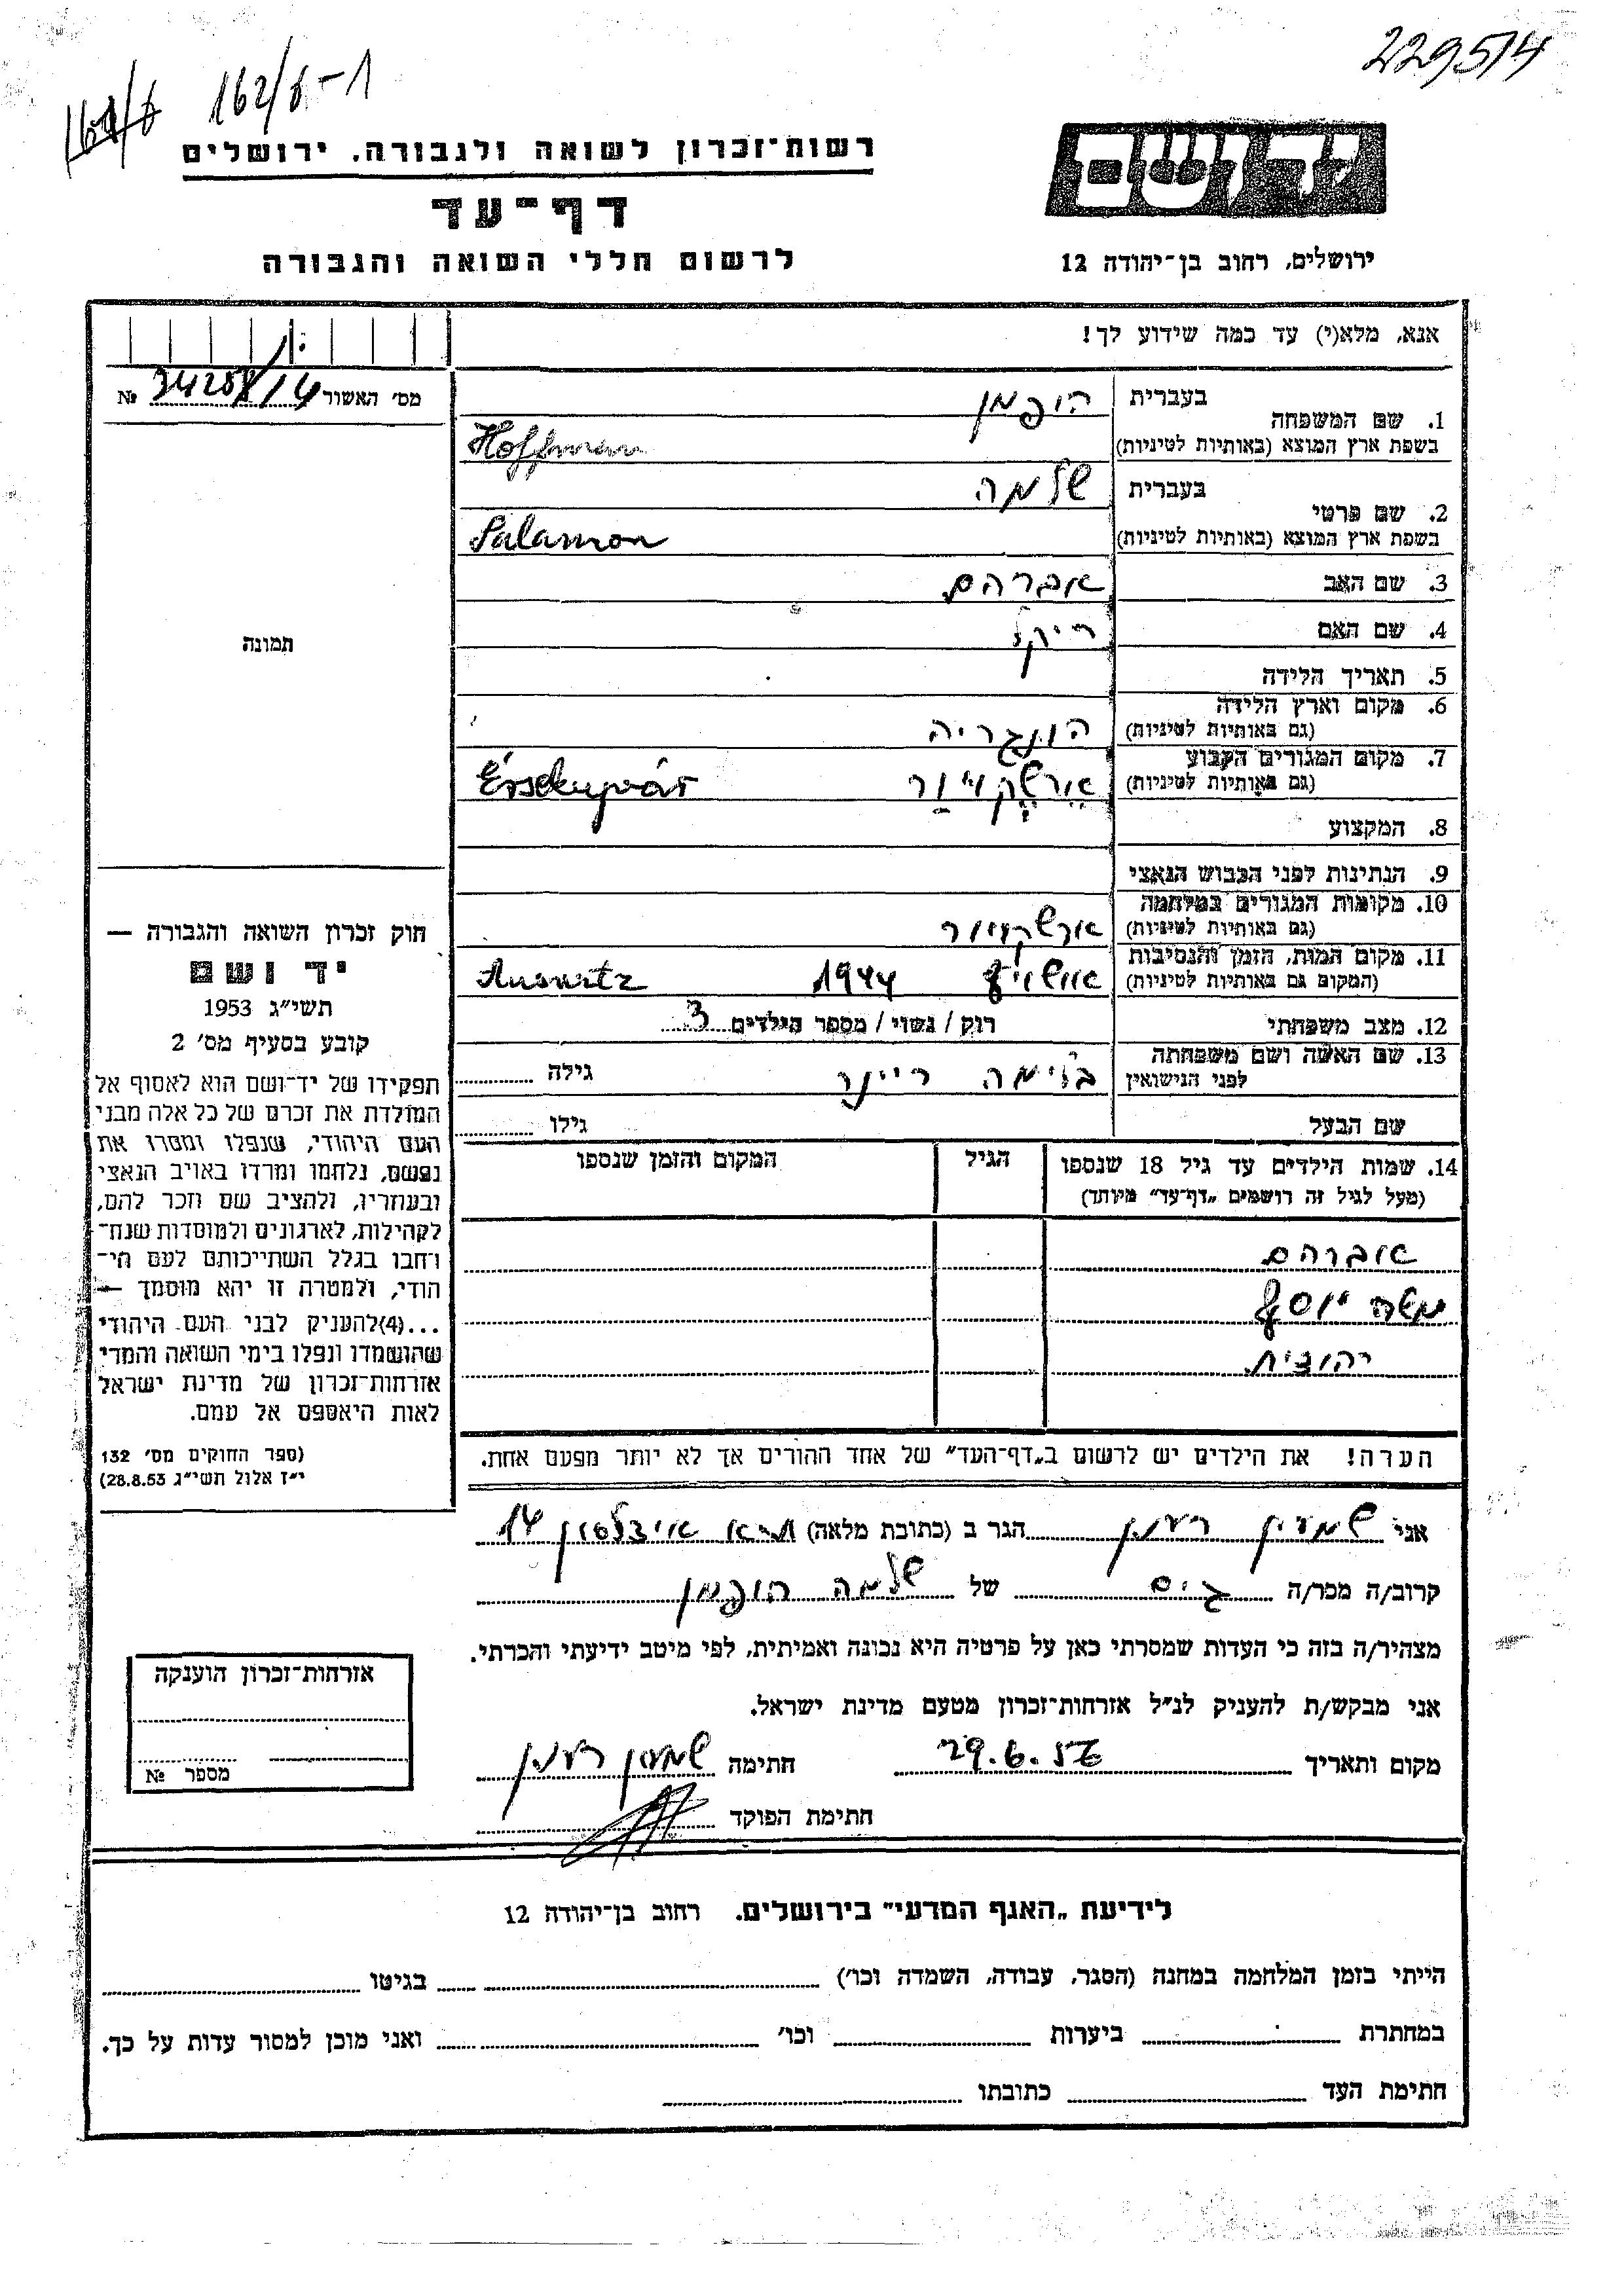 229514
161/6 162/6-1
יד ושם
רשות-זכרון לשואה ולגבורה, ירושלים
דף-עד
ירושלים, רחוב בן-יהודה 12
לרשום חללי השואה והגבורה
אנא, מלא(י) עד כמה שידוע לך!
מס' האשור №
בעברית הופמן
1. שם המשפחה
בשפת ארץ המוצא (באותיות לטיניות) Hoffman
בעברית שלמה
2. שם פרטי
בשפת ארץ המוצא (באותיות לטיניות) Salamon
3. שם האב אברהם
4. שם האם ריקל
5. תאריך הלידה
6. מקום וארץ הלידה
(גם באותיות לטיניות) הונגריה
7. מקום המגורים הקבוע
(גם באותיות לטיניות) ארשקויור Érsekujvár
8. המקצוע
9. הנתינות לפני הכבוש הנאצי
10. מקומות המגורים במלחמה
(גם באותיות לטיניות) ארשקויור
11. מקום המות, הזמן והנסיבות
(המקום גם באותיות לטיניות) אושויץ 1944 Auswitz
12. מצב משפחתי רוק / נשוי / מספר הילדים 3
13. שם האשה ושם משפחתה
לפני הנישואין בלימה ריינר גילה
שם הבעל גילו
14. שמות הילדים עד גיל 18 שנספו הגיל המקום והזמן שנספו
(מעל לגיל זה רושמים "דף-עד" מיוחד)
אברהם
משה יוסף
יהודית
הערה! את הילדים יש לרשום ב"דף-העד" של אחד ההורים אך לא יותר מפעם אחת.
תמונה
חוק זכרון השואה והגבורה —
יד ושם
תשי"ג 1953
קובע בסעיף מס' 2
תפקידו של יד-ושם הוא לאסוף אל
המולדת את זכרם של כל אלה מבני
העם היהודי, שנפלו ומסרו את
נפשם, נלחמו ומרדו באויב הנאצי
ובעוזריו, ולהציב שם וזכר להם,
לקהילות, לארגונים ולמוסדות שנח-
רחבו בגלל השתייכותם לעם הי-
הודי, ולמטרה זו יהא מוסמך —
...(4)להעניק לבני העם היהודי
שהושמדו ונפלו בימי השואה והמרי
אזרחות-זכרון של מדינת ישראל
לאות היאספם אל עמם.
(ספר החוקים מס' 132
י"ז אלול תשי"ג 28.8.53)
אני שמעון רענן הגר ב (כתובת מלאה) ת"א אידלסון 14
קרוב/ה מכר/ה גיס של שלמה הופמן
מצהיר/ה בזה כי העדות שמסרתי כאן על פרטיה היא נכונה ואמיתית, לפי מיטב ידיעתי והכרתי.
אני מבקש/ת להעניק לנ"ל אזרחות-זכרון מטעם מדינת ישראל.
מקום ותאריך 29.6.56 חתימה שמעון רענן
חתימת הפוקד
אזרחות-זכרון הוענקה
מספר №
לידיעת "האגף המדעי" בירושלים. רחוב בן-יהודה 12
הייתי בזמן המלחמה במחנה (הסגר, עבודה, השמדה וכו') בגיטו
במחתרת ביערות וכו' ואני מוכן למסור עדות על כך.
חתימת העד כתובתו